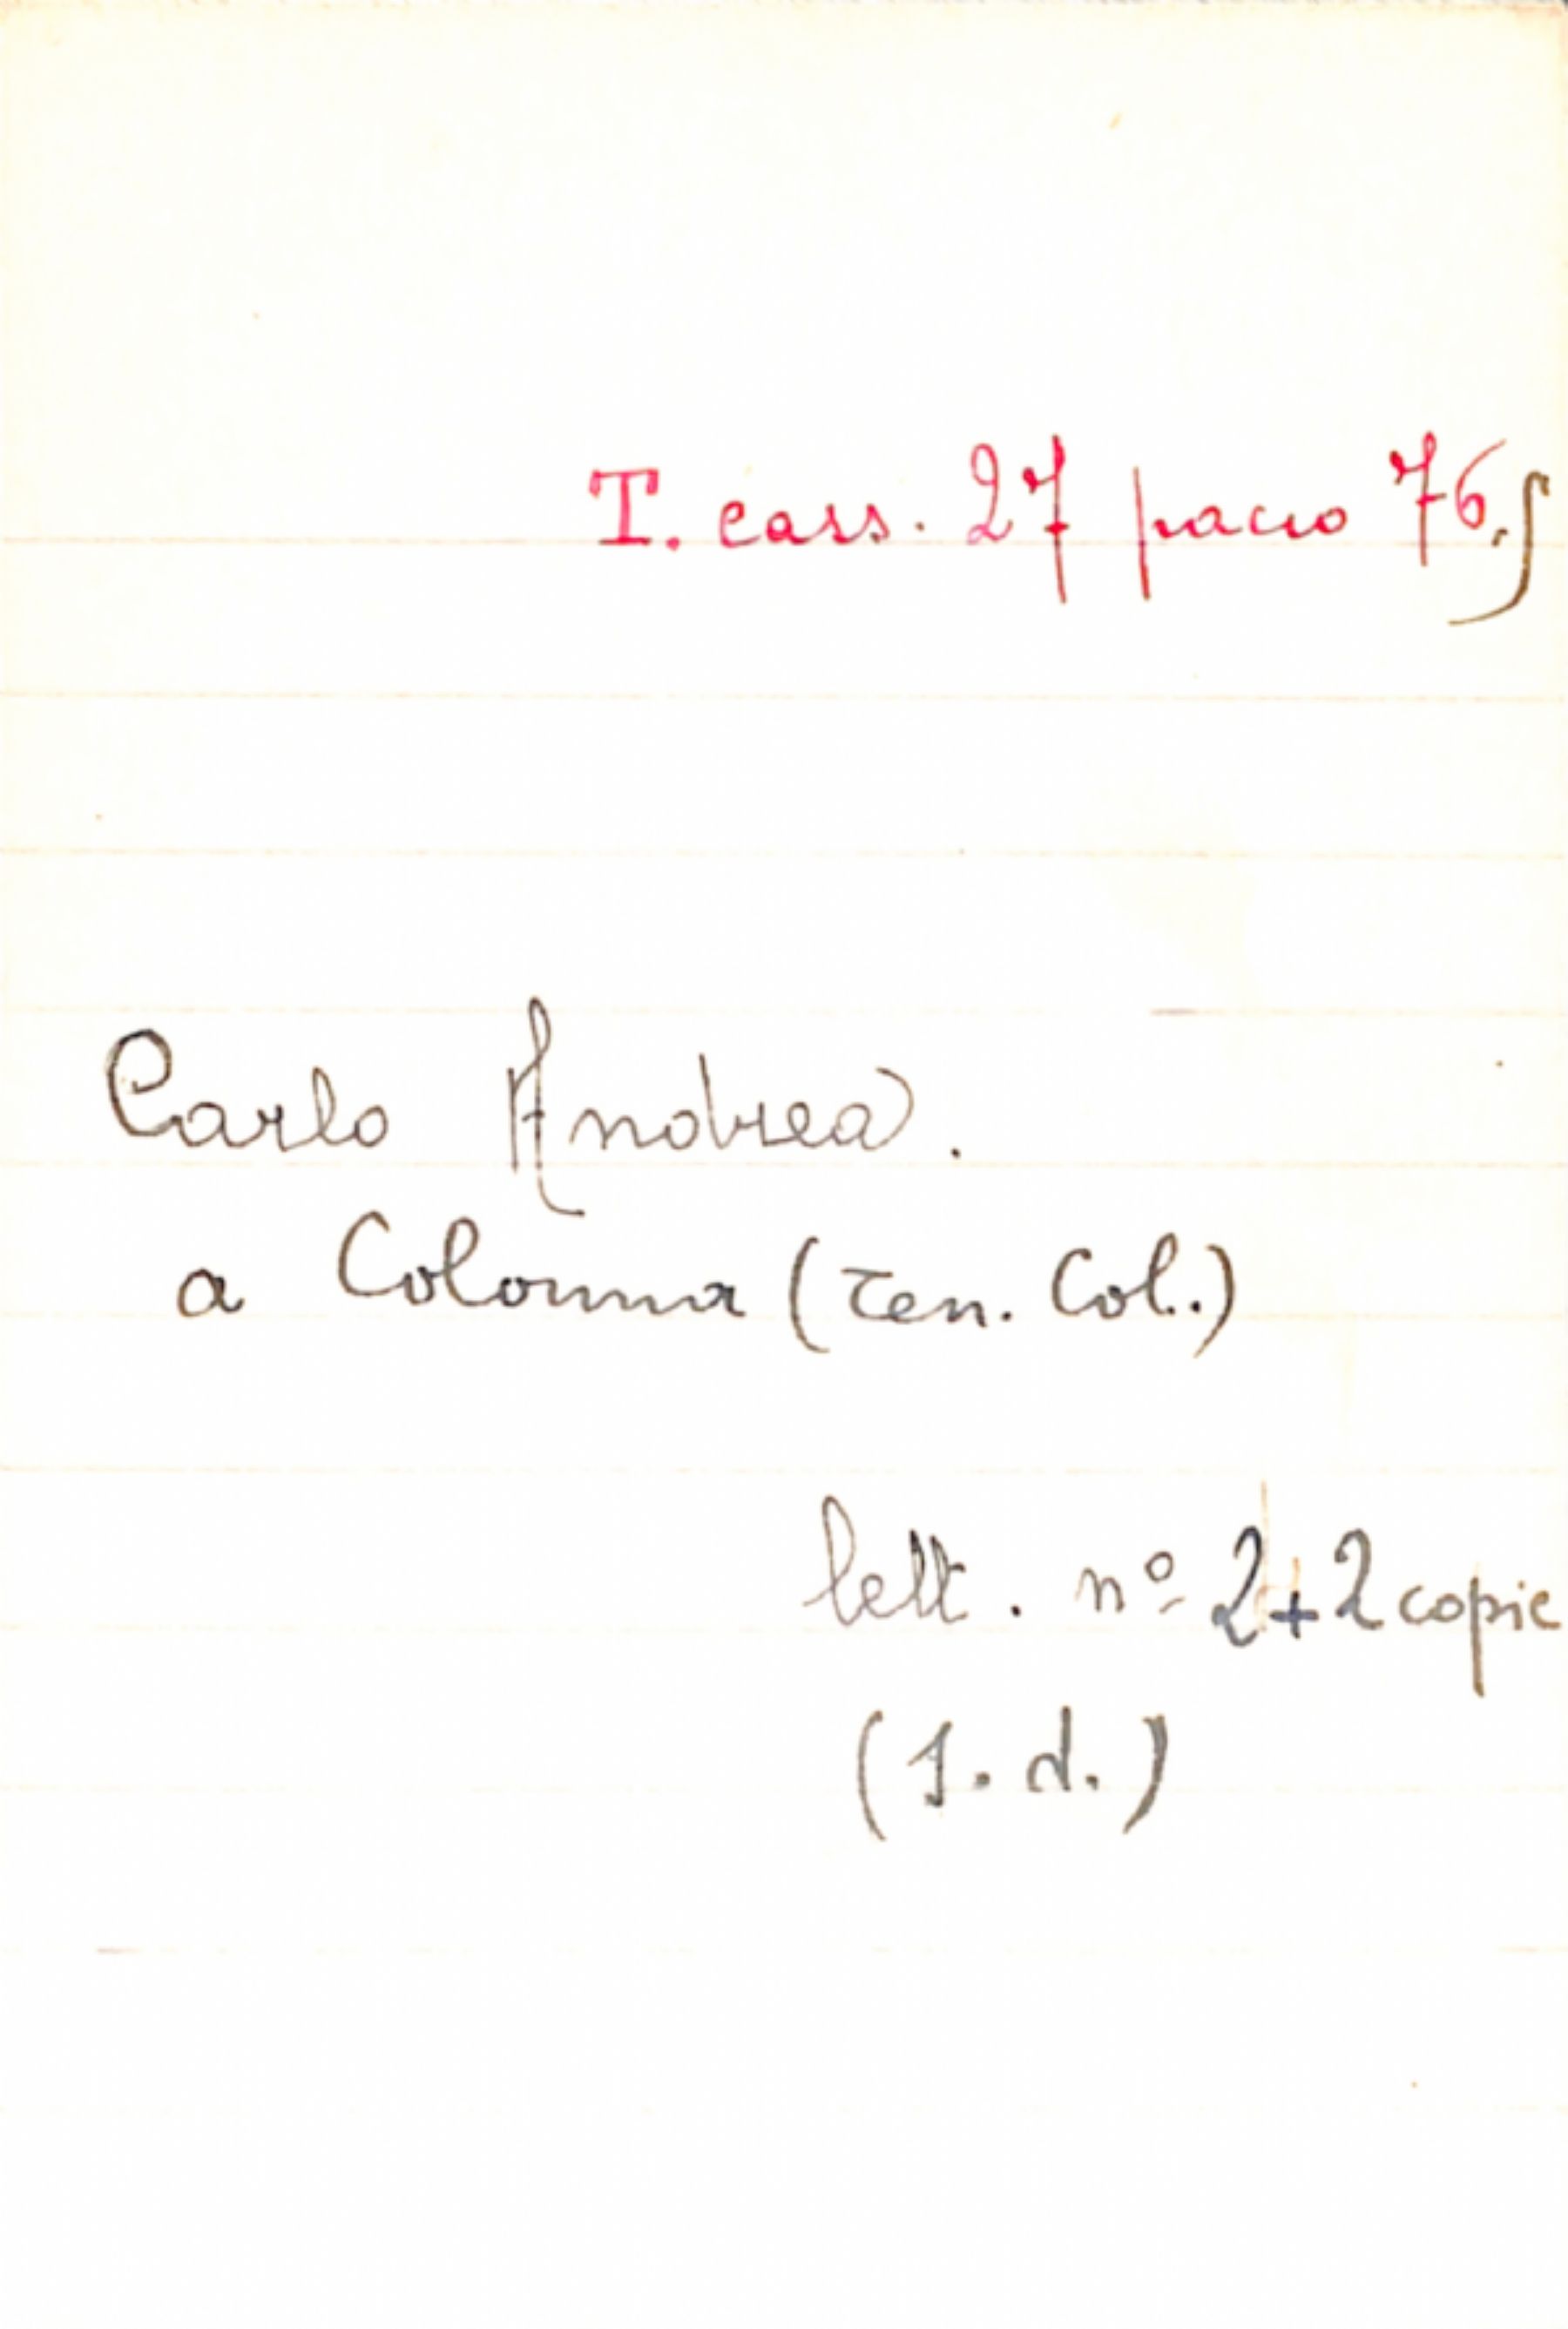 T. cass. 27 pacco 76,5
Carlo Andrea.
a Colonna (Ten. Col.)
lett. nº 2+2 copie
(s. d.)